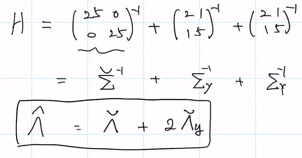 H = (25 0 0 25)⁻¹ + (2 1 1 5)⁻¹ + (2 1 1 5)⁻¹
= Σ̆⁻¹ + Σᵧ⁻¹ + Σᵧ⁻¹
Λ̂ = Λ̆ + 2 Λ̆ᵧ